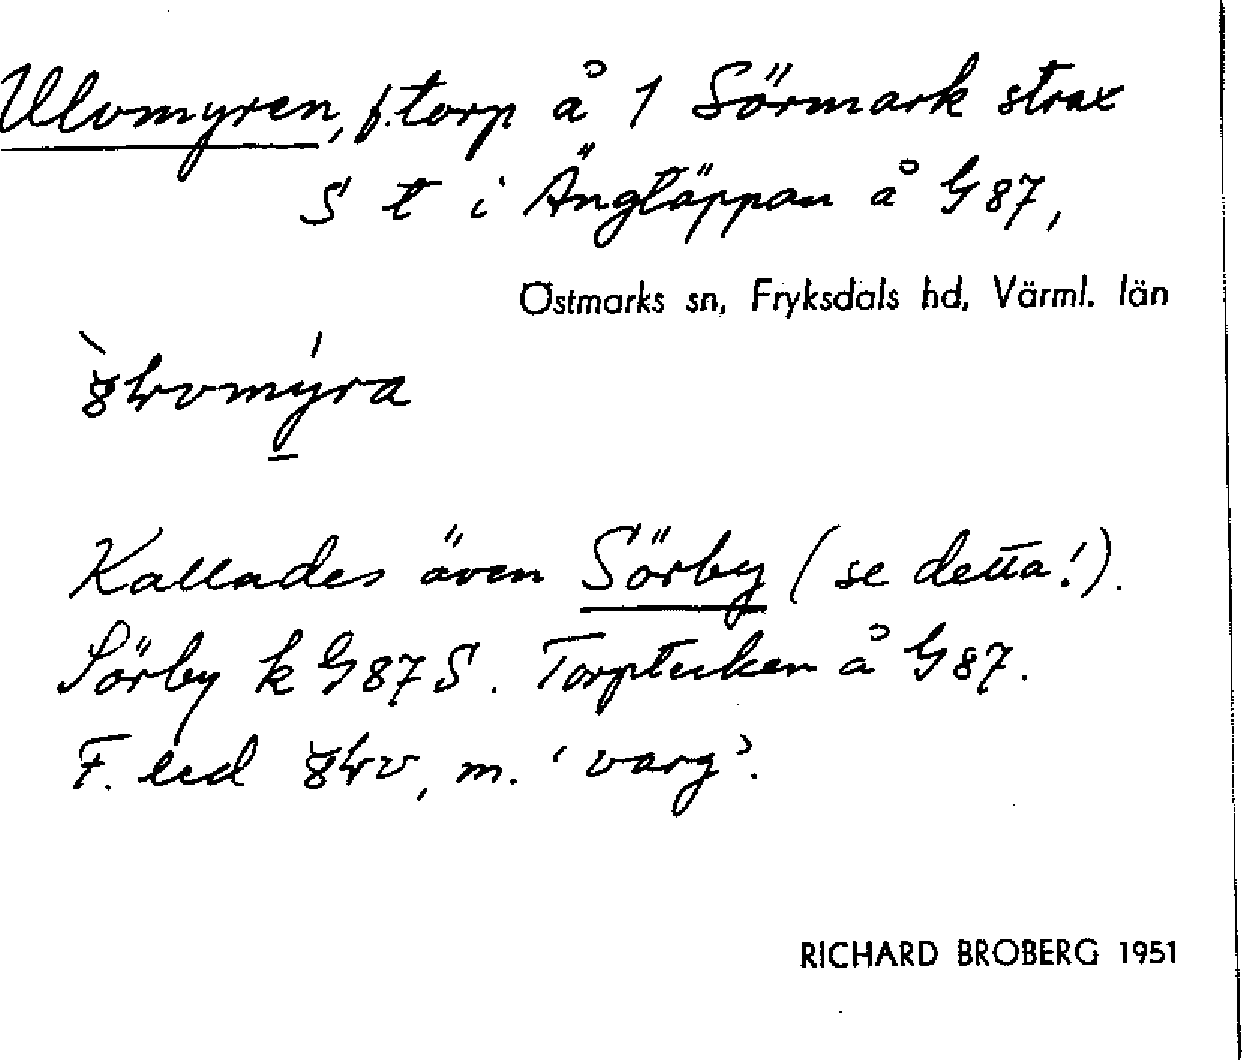 Ulvmyren, f. torp å 1 Sörmark strax
S t i Ängtäppan å G 87,
Östmarks sn, Fryksdals hd, Värml. län
Kallades även Sörby (se detta!).
Sörby k G 87 S. Torptecken å G 87.
F. led m. 'varg'.
RICHARD BROBERG 1951